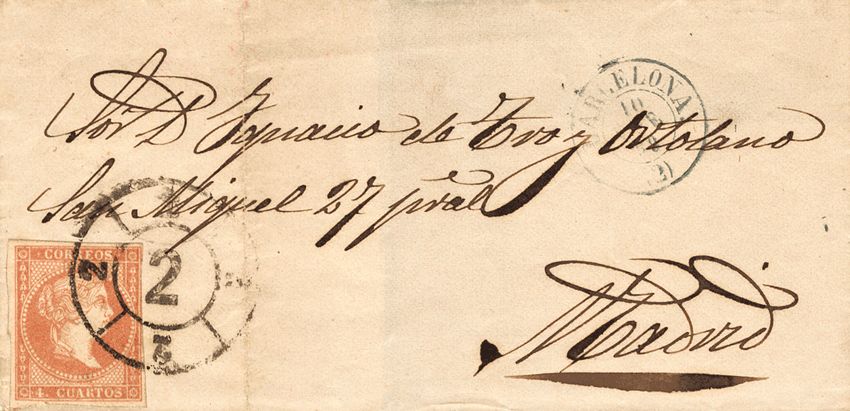 BARCELONA
10
(2)
Sor D Ygnacio de Tro y Ortolano
San Miguel 27 pral
2
2
2
2
CORREOS
4 CUARTOS
Madrid